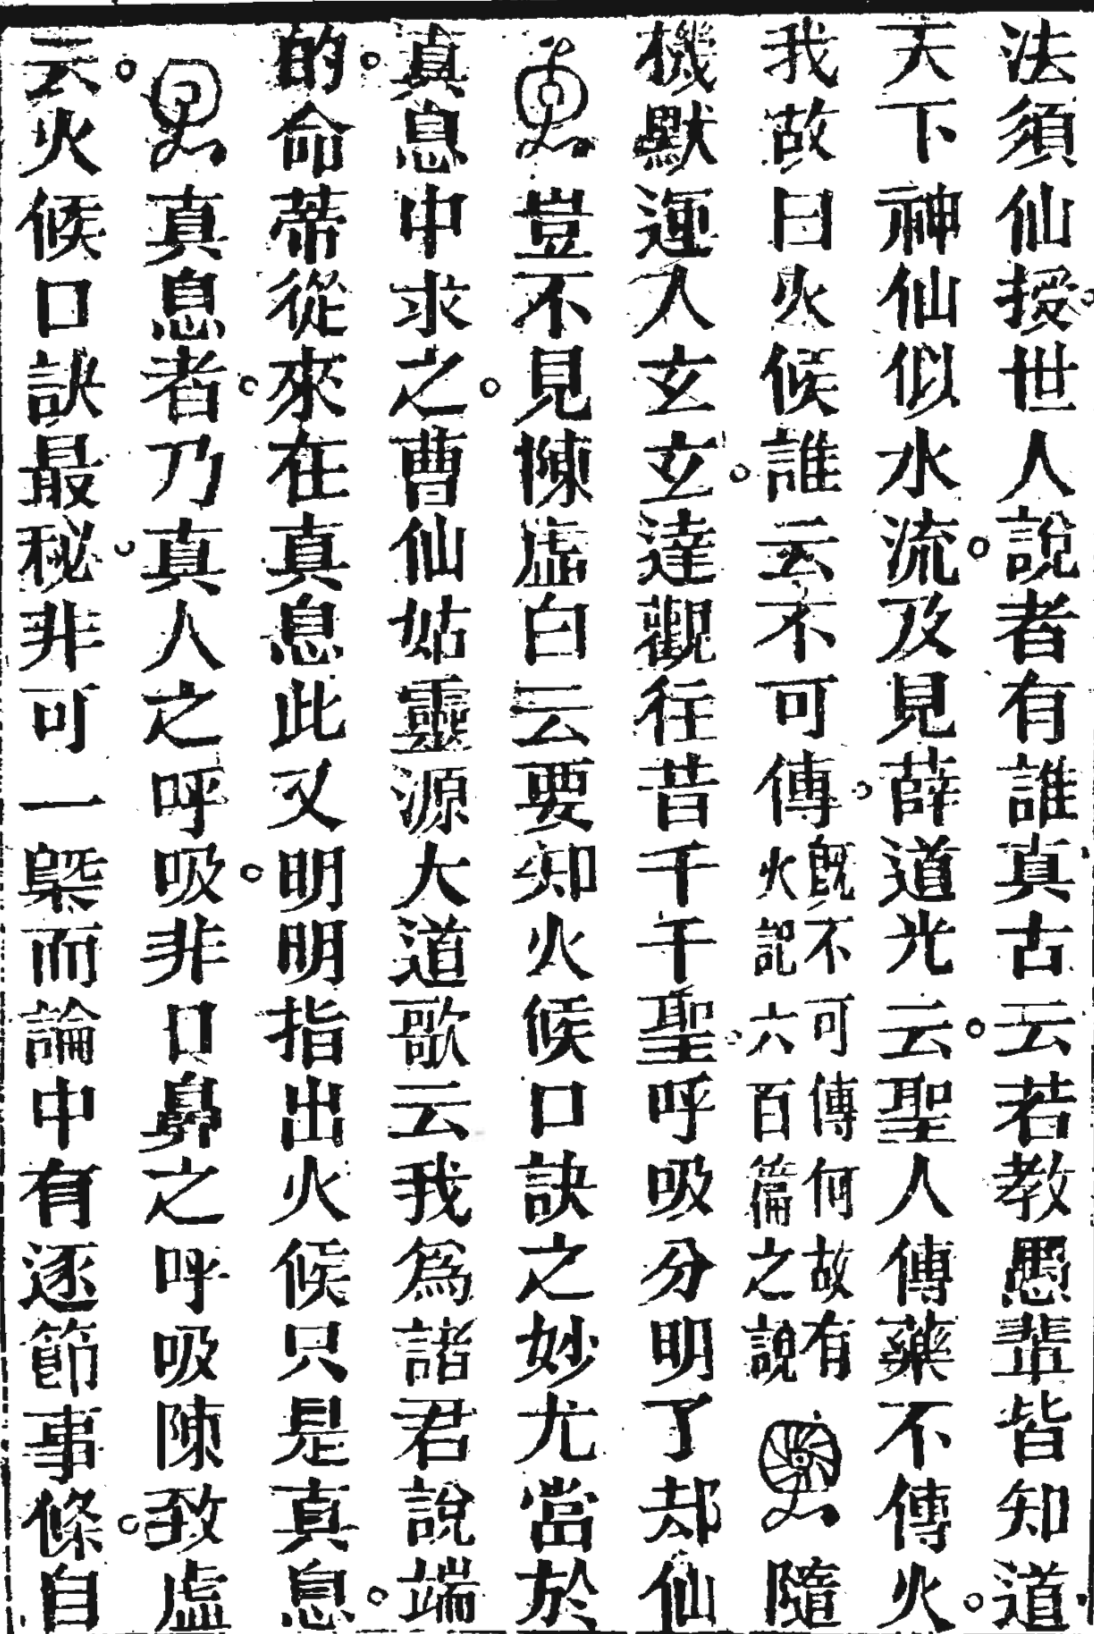 法須仙授世人說者有誰真古云若教愚輩皆知道
天下神仙似水流及見薛道光云聖人傳藥不傳火
我故曰火候誰云不可傳既不可傳何故有火記六百篇之說隨
機默運人玄玄達觀往昔千千聖呼吸分明了却仙
豈不見陳虛白云要知火候口訣之妙尤當於
真息中求之曹仙姑靈源大道歌云我為諸君說端
的命蒂從來在真息此又明明指出火候只是真息
真息者乃真人之呼吸非口鼻之呼吸陳致虛
云火候口訣最秘非可一槩而論中有逐節事條自